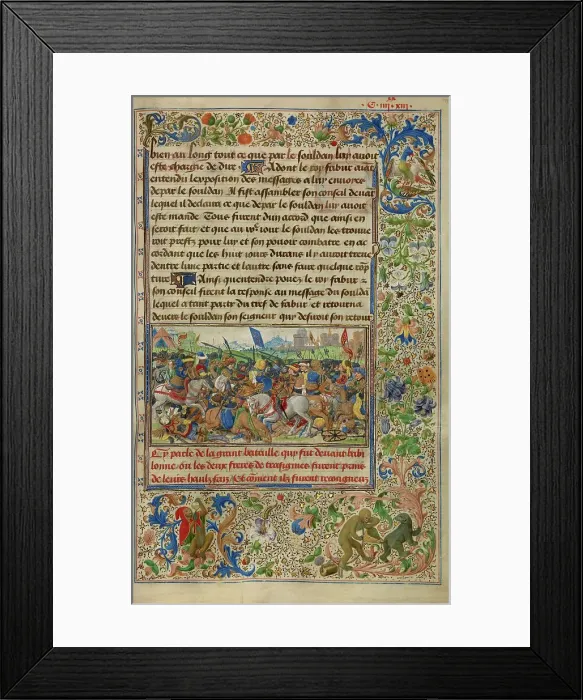 bien au long tout ce que par le souldan luy auoit
este charge de dire Adont le roy fabur aiant
entendu lexposition des messages a luy enuoies
depar le souldan Il fist assembler son conseil deuat
lequel il declaira ce que depar le souldan luy auoit
este mande Tous furent dun acord que ainsi en
seroit fait et que au iour le souldan les trouue
roit prestz pour luy et son pouoir combatre en ac
cordant que les huit iours durans il y auroit treue
dentre lune partie et lautre sans faire quelque
ture Ainsi quentendre pouez le roy fabur
son conseil firent la response au message du soulda
lequel atant party du tref de fabur et retourna
deuers le souldan son seigneur quy desiroit son retour
Cy parle de la grant bataille quy fut deuant babi
lonne ou les deux freres de trasignies furent prins
de leurs haulz fais et coment ilz furent recongneuz